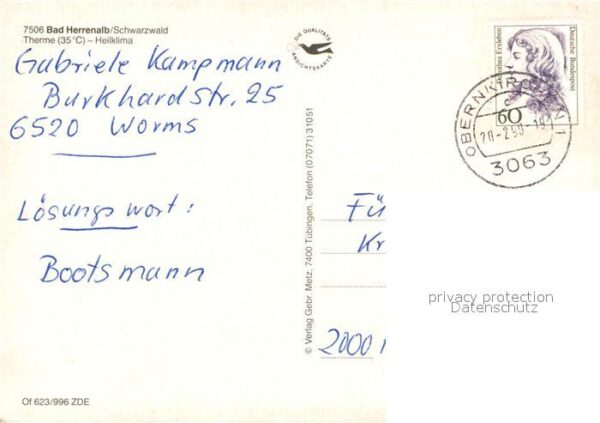 7506 Bad Herrenalb/Schwarzwald
Therme (35°C) – Heilklima
Gabriele Kampmann
Burkhardstr. 25
6520 Worms
Lösungswort:
Bootsmann
Of 623/996 ZDE
© Verlag Gebr. Metz, 7400 Tübingen, Telefon (07071) 31051
DIE QUALITÄTS
ANSICHTSKARTE
Erxleben
Deutsche Bundespost
60
OBERNKIRCHEN 1
3063
Fü
Kr
2000
privacy protection
Datenschutz